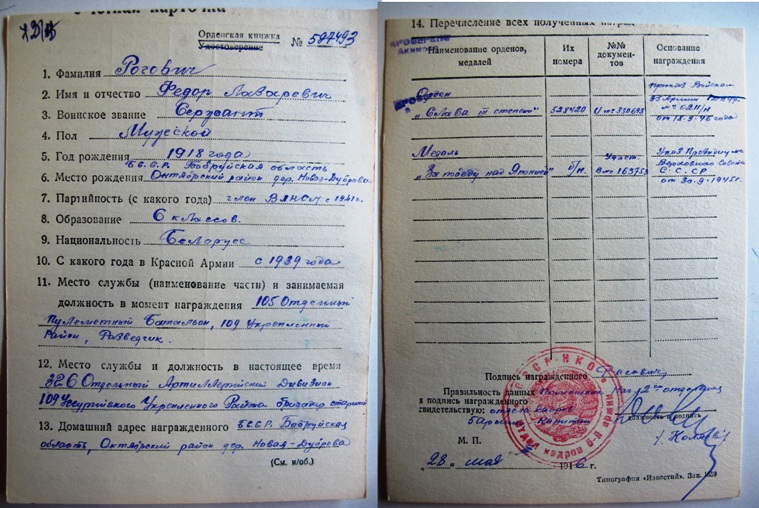 учетная карточка
Орденская книжка
Удостоверение № 587493
1. Фамилия Рогович
2. Имя и отчество Федор Лазаревич
3. Воинское звание Сержант
4. Пол Мужской
5. Год рождения 1918 года
Б.С.С.Р. Бобруйская область
6. Место рождения Октябрский район дер. Новая-Дуброва
7. Партийность (с какого года) член ВЛКСМ с 1941 г.
8. Образование 6 классов.
9. Национальность Беларусс
10. С какого года в Красной Армии с 1939 года
11. Место службы (наименование части) и занимаемая
должность в момент награждения 105 Отдельный
Пулеметный Батальон, 109 Укрепленный
Район, Разведчик.
12. Место службы и должность в настоящее время
326 Отдельный Артиллерийский Дивизион
109 Укрепленного Района
13. Домашний адрес награжденного Б.С.С.Р. Бобруйская
область, Октябрский район дер. Новая-Дуброва
(См. н/об.)
14. Перечисление всех полученных наград
Наименование орденов, медалей
Их номера
№№ документов
Основание награждения
Орден
„Слава III степени" 528420
приказ Войскам
Медаль
„За победу над Японией" б/н.
Указ Президиума
Верховного Совета
С.С.СР
от 30-9-1945 г.
Подпись награжденного
Правильность данных
и подпись награжденного
свидетельствую:
Капитан
должность и подпись
М. П.
„28" мая 1946 г.
Типография «Известий». Зак. 1859